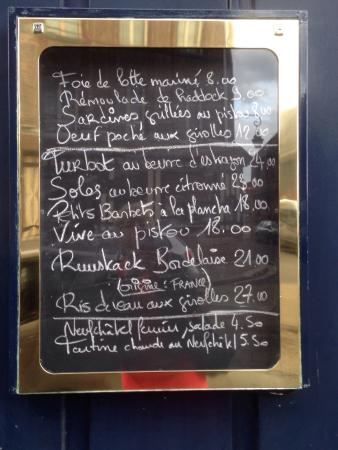 Foie de lotte mariné 8.00
Rémoulade de Haddock 9.00
Sardines grillées au pistou 8.00
Oeuf poché aux girolles 12.00
Turbot au beurre d'estragon 24.00
Soles au beurre citronné 23.00
Petits Barbets à la plancha 18.00
Vive au pistou 18.00
Rumskack Bordelaise 21.00
(origine : FRANCE)
Ris de veau aux girolles 27.00
Neufchâtel fermier, salade 4.50
Tartine chaude au Neufchâtel 5.50